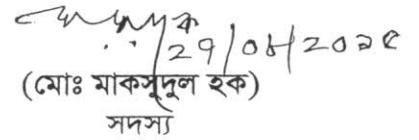 ২৭/০৮/২০২৫
(মোঃ মাকসুদুল হক)
সদস্য